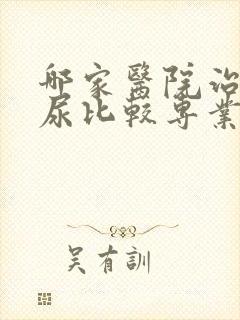 哪家醫院治
尿比較專業
吳有訓